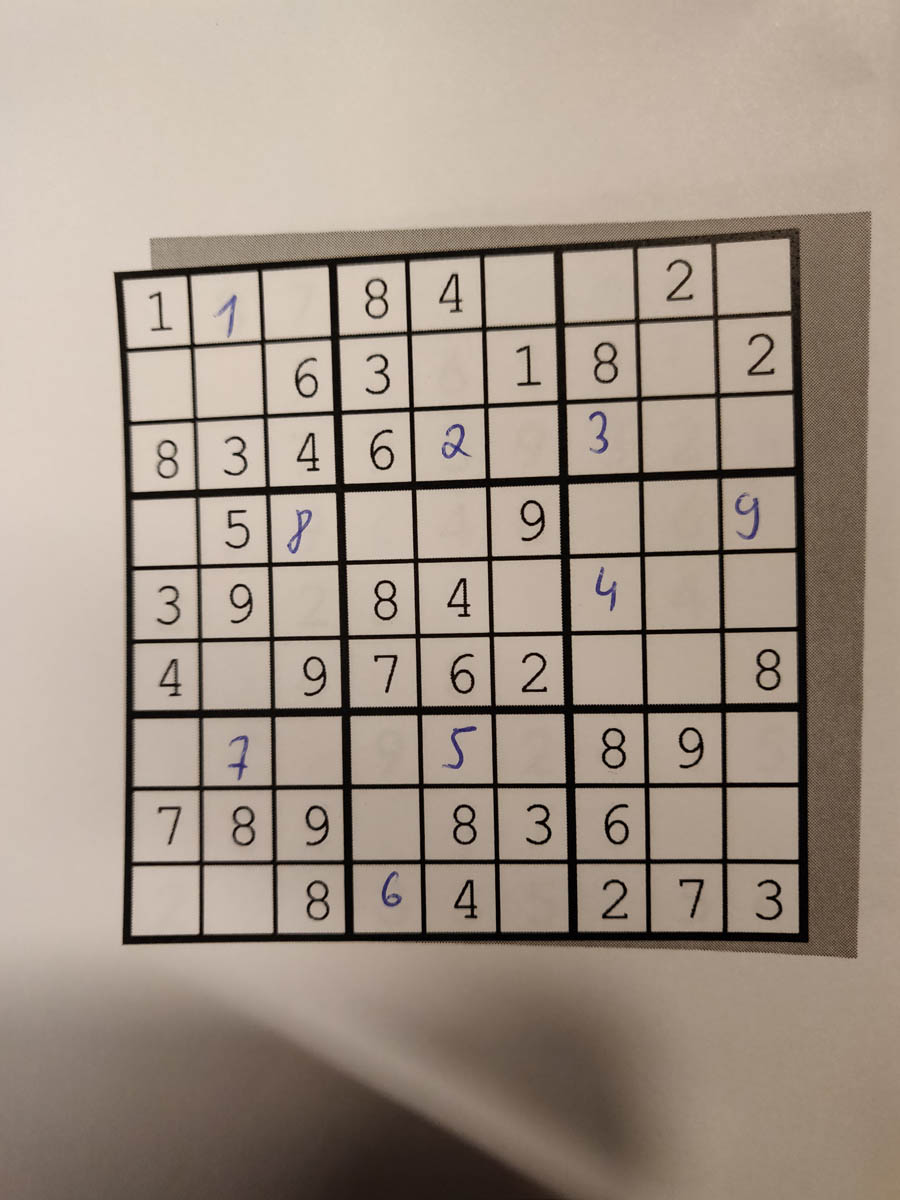 1 1 8 4 2
6 3 1 8 2
8 3 4 6 2 3
5 8 9 9
3 9 8 4 4
4 9 7 6 2 8
7 5 8 9
7 8 9 8 3 6
8 6 4 2 7 3